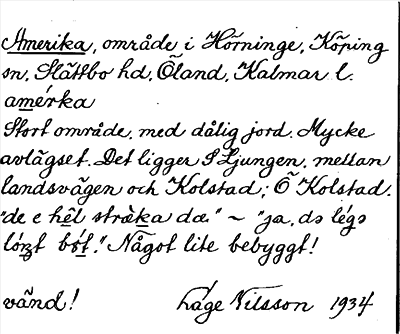 Amerika, område i Hörninge, Köping
sn, Slättbo hd, Öland, Kalmar l.
amérka
Stort område, med dålig jord. Mycke
avlägset. Det ligger S Ljungen, mellan
landsvägen och Kolstad; Ö Kolstad.
"de e hêl stràka dæ." ~ "ja, də légə
lóŋt bót." Något lite bebyggt!
vänd! Låge Nilsson 1934